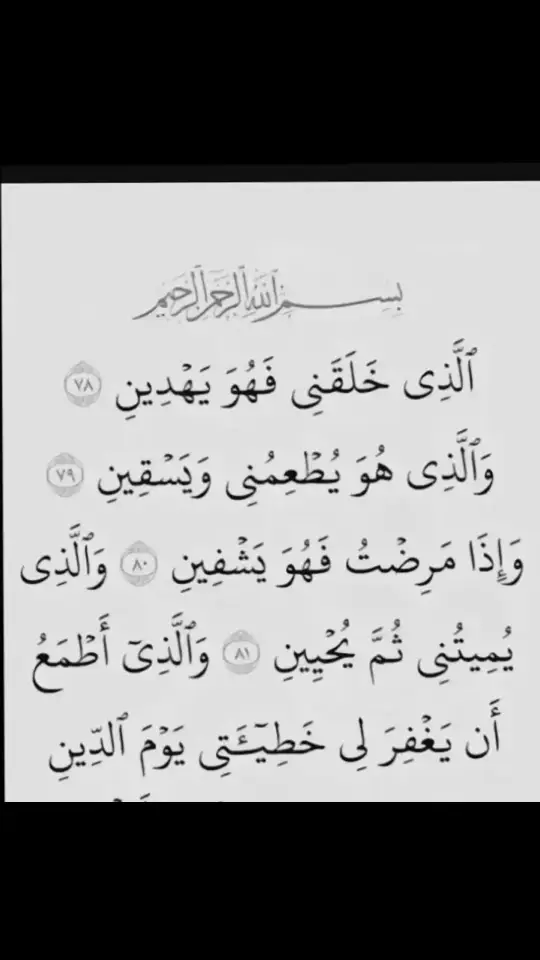 بِسْمِ ٱللَّهِ ٱلرَّحْمَٰنِ ٱلرَّحِيمِ
ٱلَّذِى خَلَقَنِى فَهُوَ يَهْدِينِ ٧٨
وَٱلَّذِى هُوَ يُطْعِمُنِى وَيَسْقِينِ ٧٩
وَإِذَا مَرِضْتُ فَهُوَ يَشْفِينِ ٨٠ وَٱلَّذِى
يُمِيتُنِى ثُمَّ يُحْيِينِ ٨١ وَٱلَّذِىٓ أَطْمَعُ
أَن يَغْفِرَ لِى خَطِيٓـَٔتِى يَوْمَ ٱلدِّينِ